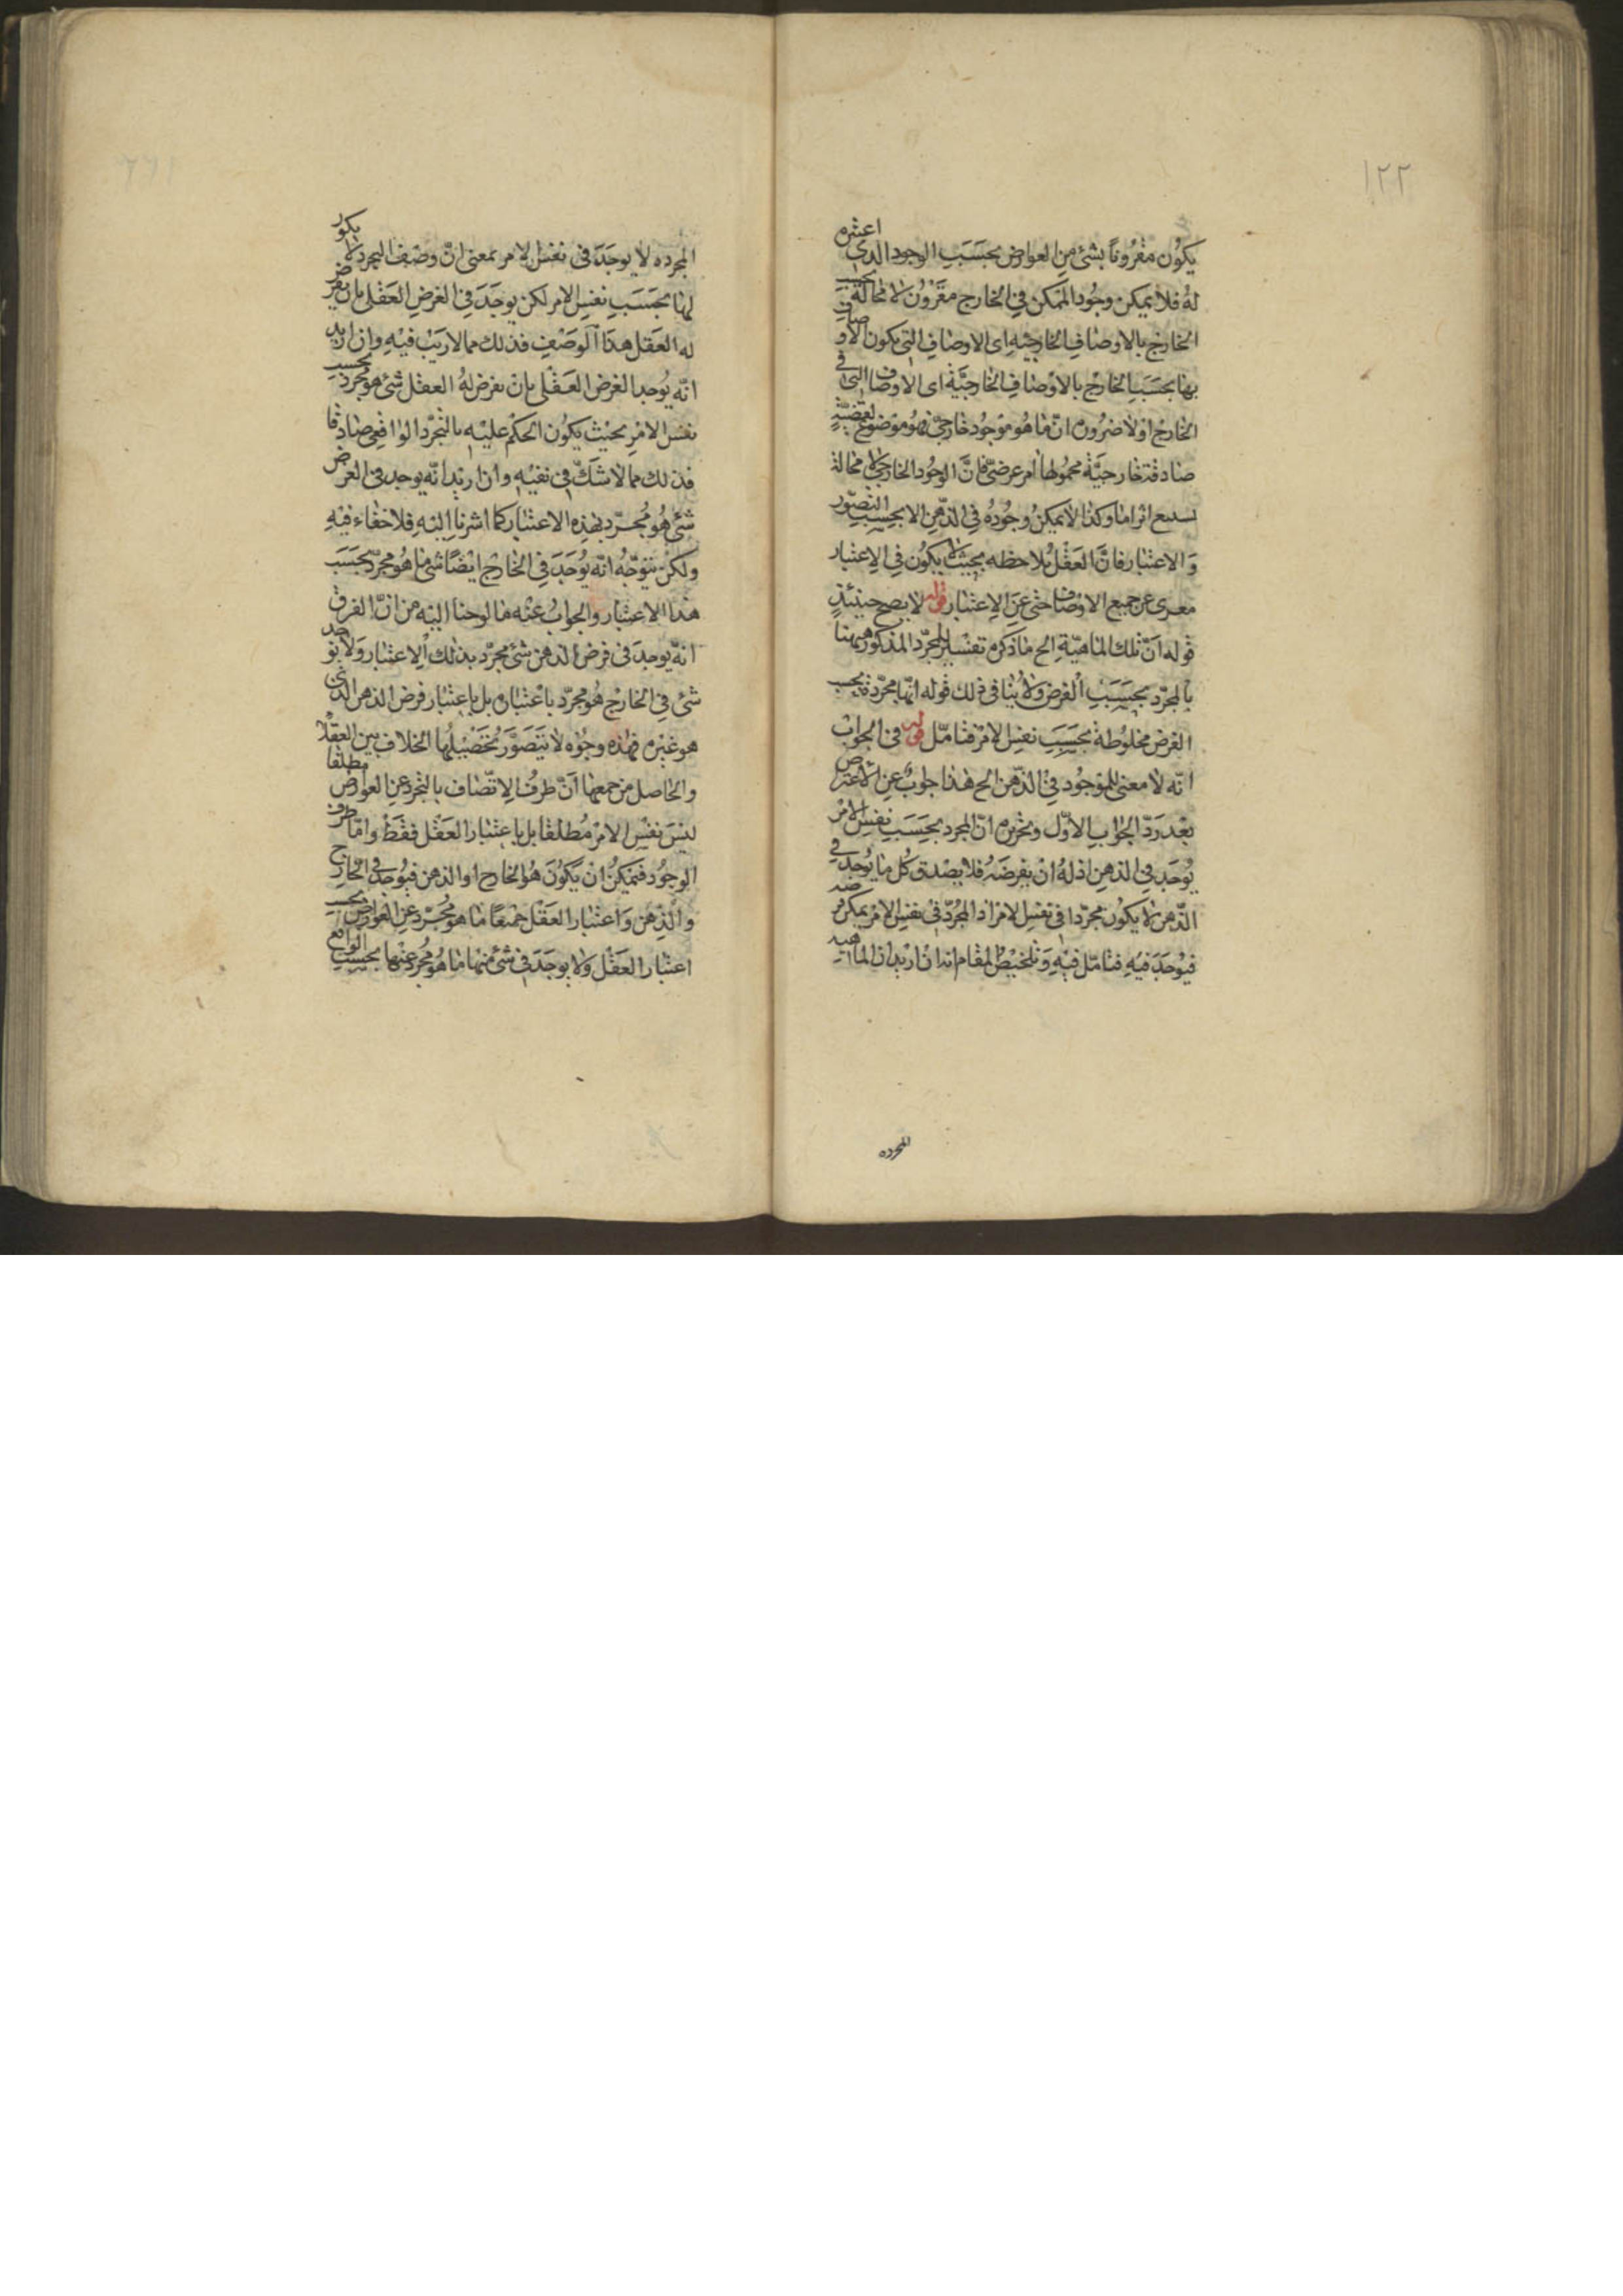 ١٢٢
يكون مقرونا بشئ من العوارض بحسب الوجود الذى اعتبره
له فلا يمكن وجود الممكن فى الخارج مقرون لا محالة بحسب
الخارج بالاوصاف الخارجية اى الاوصاف التى يكون الاوصاف
بها بحسب الخارج بالاوصاف الخارجية اى الاوصاف التى فى
الخارج اولا ضرورة ان ما هو موجود خارجى فهو موضوع لقضية
صادقة خارجية محمولها امر عرضى فان الوجود الخارجى لا محالة
اثراما وكذا لا يمكن وجوده فى الذهن الا بحسب التصور
والاعتبار فان العقل يلاحظه بحيث لا يكون فى الاعتبار
معرى عن جميع الاوصاف حتى عن الاعتبار قوله لا يصح حينئذ
قوله ان تلك الماهية الخ ما ذكره تفسير للمجرد المذكور ههنا
بالمجرد بحسب الفرض ولا ينافى ذلك قوله انها مجردة بحسب
الفرض مخلوطة بحسب نفس الامر فتامل قوله فى الجواب
انه لا معنى للموجود فى الذهن الخ هذا جواب عن الاعتراض
بعد رد الجواب الاول وتحريره ان المجرد بحسب نفس الامر
يوجد فى الذهن اذ له ان يفرضه فلا يصدق كل ما يوجد فى
الذهن لا يكون مجردا فى نفس الامر اذ المجرد فى نفس الامر يمكن فرضه
فيوجد فيه فتامل فيه وتلخيص المقام انه ان اريد ان الماهية
المجرده
المجرده لا يوجد فى نفس الامر بمعنى ان وصف التجرد لا يكون
لها بحسب نفس الامر لكن يوجد فى الفرض العقلى بان يفرض
له العقل هذا الوصف فذلك مما لا ريب فيه وان اريد
انه يوجد الفرض العقلى بان يفرض له العقل شئ هو مجرد بحسب
نفس الامر بحيث يكون الحكم عليه بالتجرد الواقعى صادقا
فذلك مما لا شك فى نفيه وان اريد انه يوجد فى الفرض
شئ هو مجرد بهذه الاعتبار كما اشرنا اليه فلا خفاء فيه
ولكن يتوجه انه يوجد فى الخارج ايضا شئ ما هو مجرد بحسب
هذا الاعتبار والجواب عنه ما لوحنا اليه من ان الفرق
انه يوجد فى فرض الذهن شئ مجرد بذلك الاعتبار ولا يوجد
شئ فى الخارج هو مجرد باعتباره بل باعتبار فرض الذهن الذى
هو غيره فهذه وجوه لا يتصور تحصيلها الخلاف بين العقلا
والحاصل من جمعها ان ظرف الاتصاف بالتجرد عن العوارض مطلقا
ليس نفس الامر مطلقا بل باعتبار العقل فقط واما ظرف
الوجود فيمكن ان يكون هو الخارج او الذهن فيوجد فى الخارج
والذهن واعتبار العقل جميعا ما هو مجرد عن العوارض بحسب
اعتبار العقل ولا يوجد فى شئ منها ما هو مجرد عنها بحسب الواقع